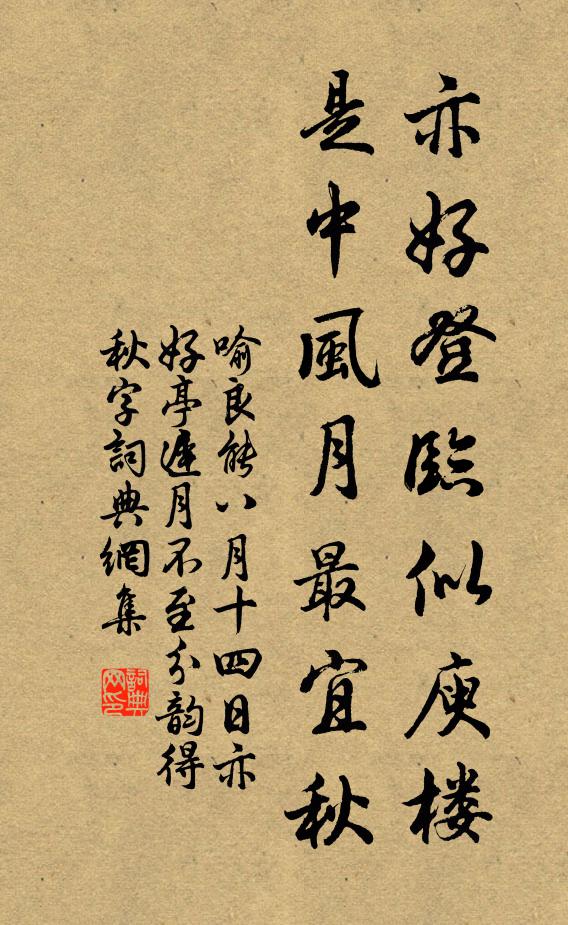 亦好登臨似庾楼
是中風月最宜秋
喻良能八月十四日亦
好亭遲月不至分韵得
秋字詞典網集
詞典
网印